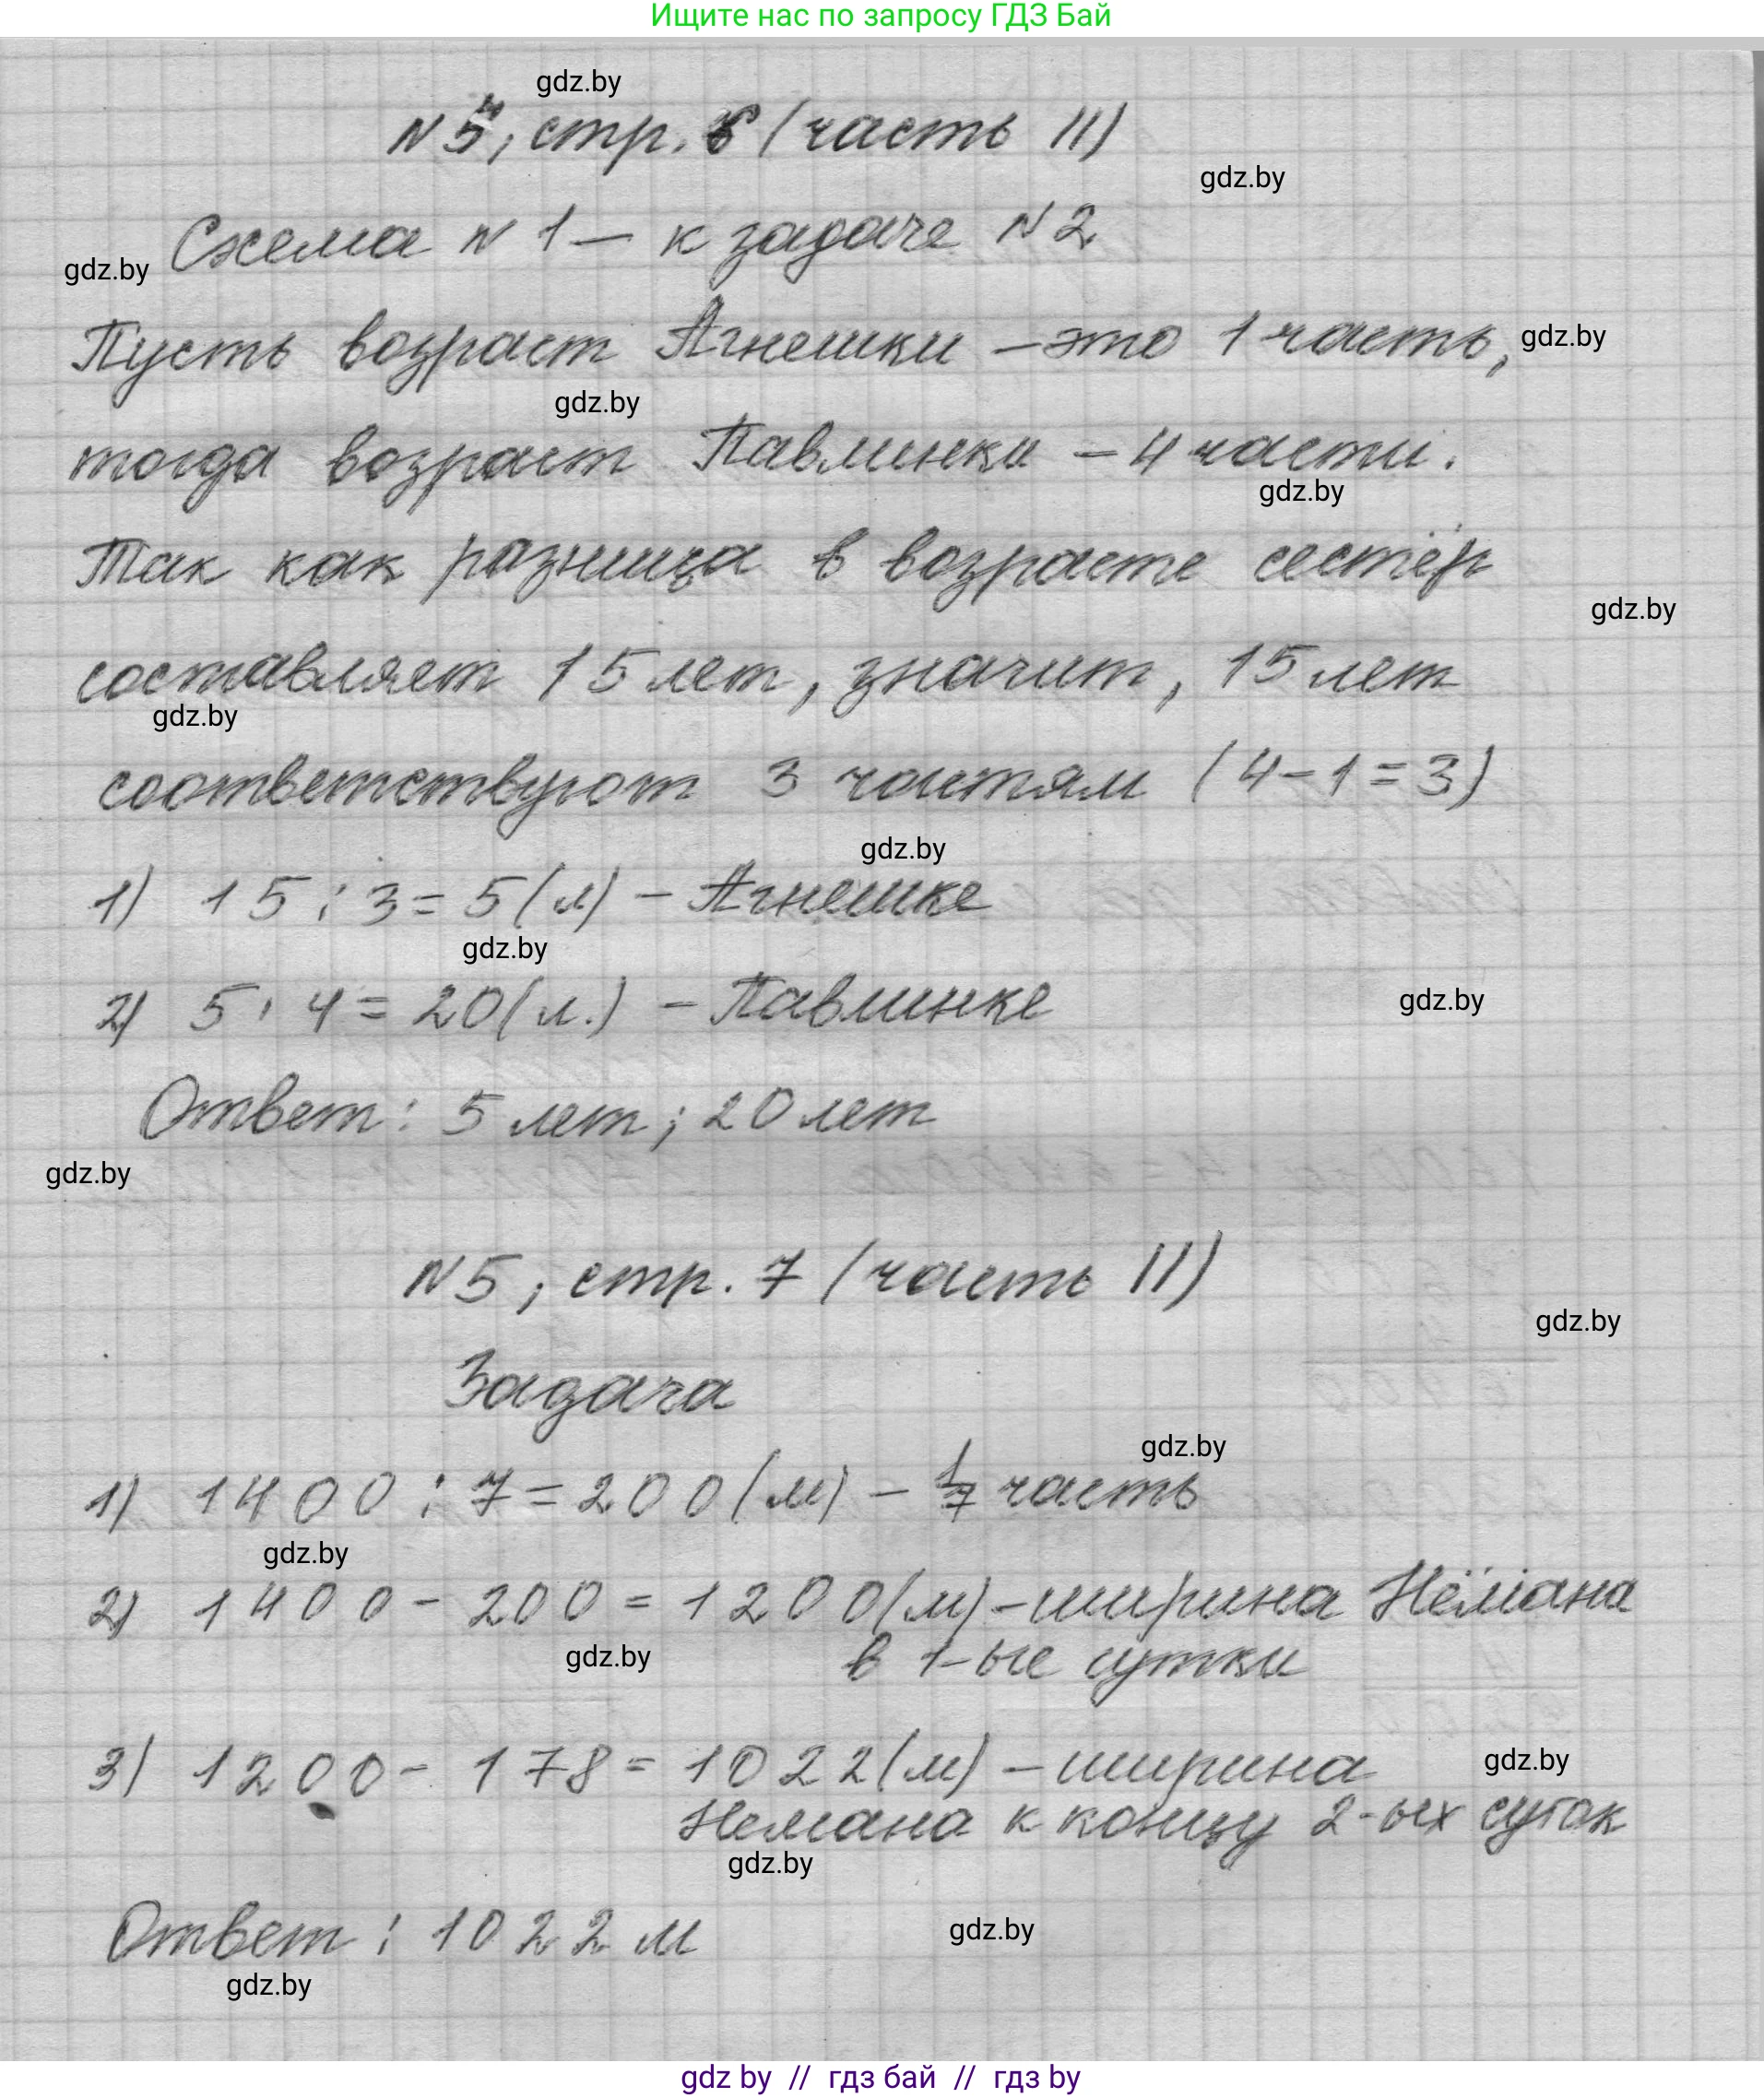 Ищите нас по запросу ГДЗ Бай
gdz.by
стр. 6 (часть II)
gdz.by
Схема N 1 — к задаче N 2
gdz.by
Пусть возраст Агнешки – это 1 часть,
gdz.by
gdz.by
тогда возраст Павлинки – 4 части.
gdz.by
Так как разница в возрасте сестёр
gdz.by
составляет 15 лет, значит, 15 лет
gdz.by
соответствуют 3 частям (4 – 1 = 3)
gdz.by
1) 15 : 3 = 5 (л) – Агнешке
gdz.by
2) 5 · 4 = 20 (л.) – Павлинке
gdz.by
Ответ: 5 лет; 20 лет
gdz.by
N 5, стр. 7 (часть II)
gdz.by
Задача
gdz.by
1) 1400 : 7 = 200 (м) – 1/7 часть
gdz.by
2) 1400 – 200 = 1200 (м) – ширина Нёмана
gdz.by
в 1-ые сутки
3) 1200 – 178 = 1022 (м) – ширина
gdz.by
Немана к концу 2-ых суток
gdz.by
Ответ: 1022 м
gdz.by
gdz.by
gdz by // гдз бай // гдз by